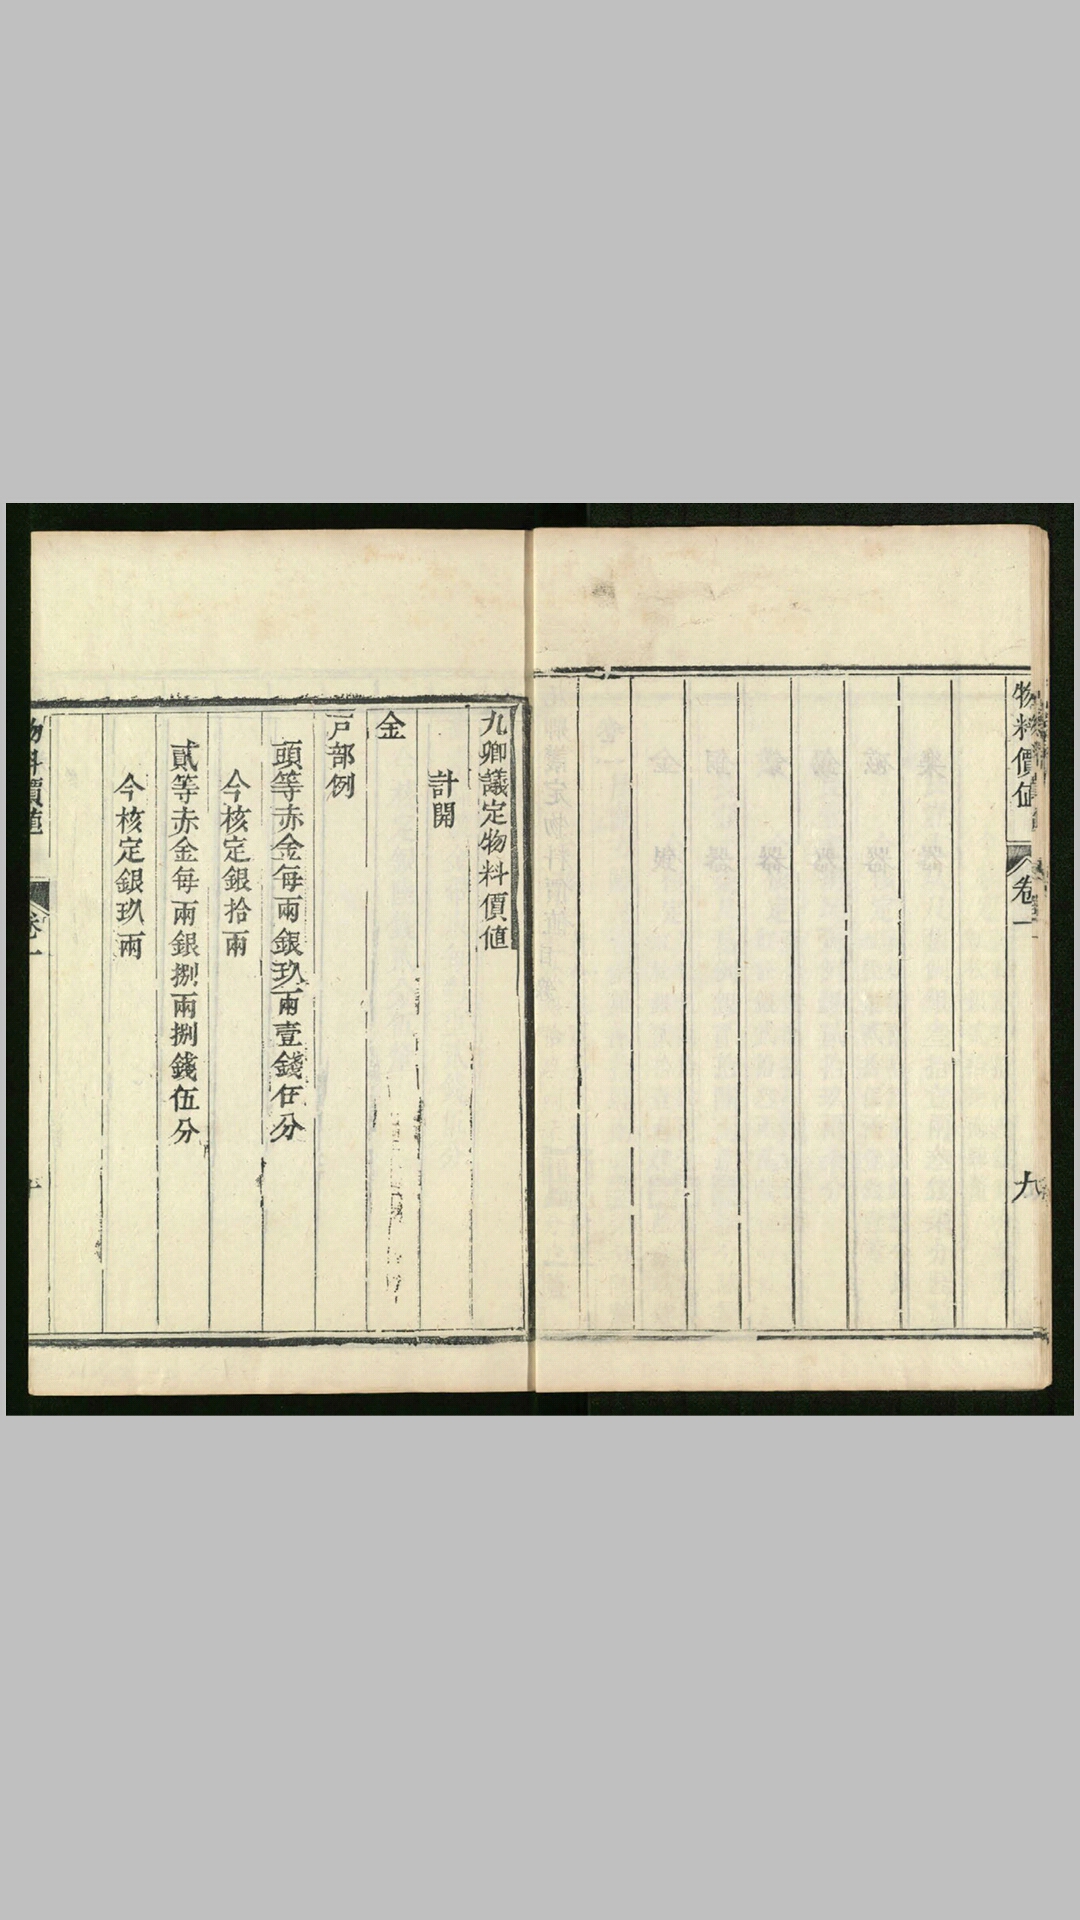 物料價值
卷一
九
九卿議定物料價值
計開
金
戸部例
頭等赤金每兩銀玖兩壹錢伍分
今核定銀拾兩
貳等赤金每兩銀捌兩捌錢伍分
今核定銀玖兩
物料價值
卷一